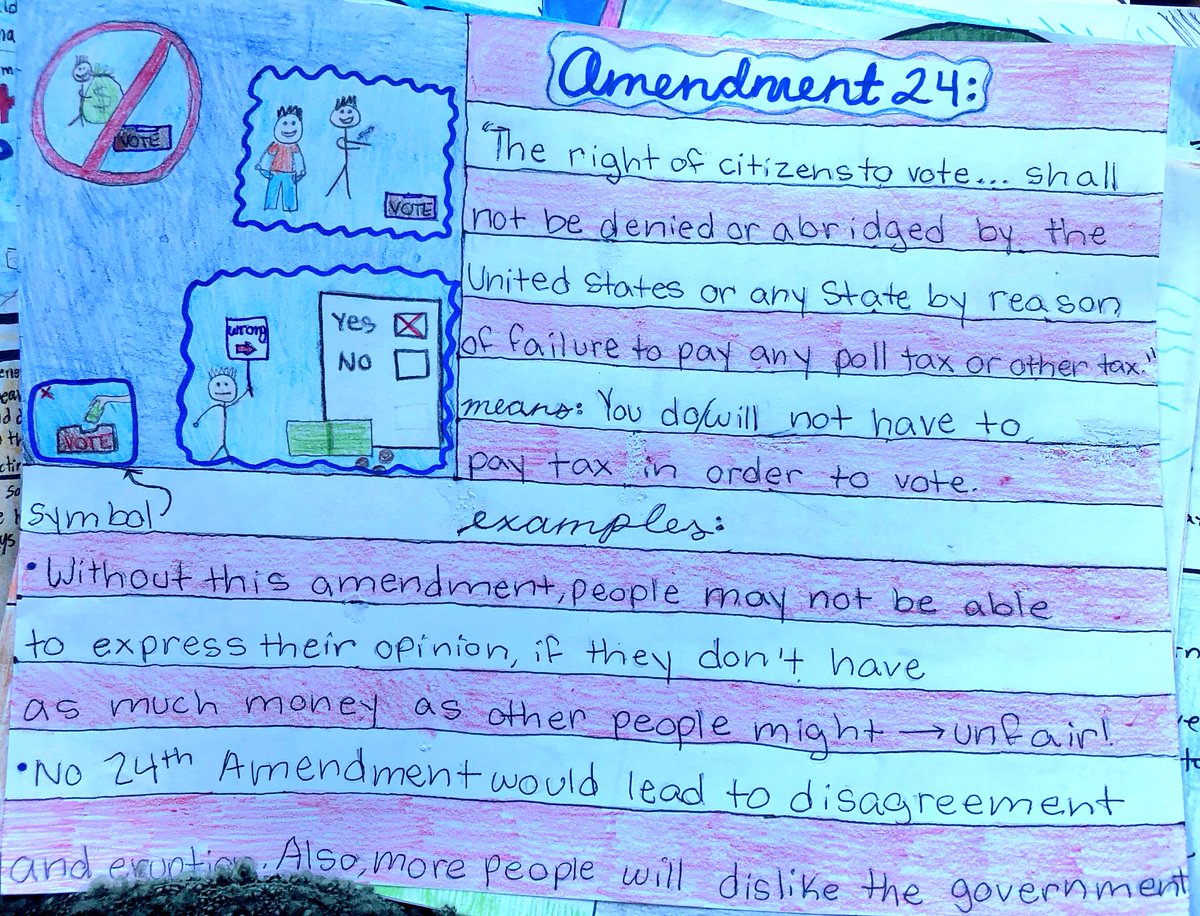 Amendment 24:
"The right of citizens to vote... shall
not be denied or abridged by the
United States or any State by reason
of failure to pay any poll tax or other tax."
means: You do/will not have to
pay tax in order to vote.
VOTE
VOTE
wrong
Yes
No
VOTE
symbol
examples:
• Without this amendment, people may not be able
to express their opinion, if they don't have
as much money as other people might → unfair!
• No 24th Amendment would lead to disagreement
and eruption. Also, more people will dislike the government